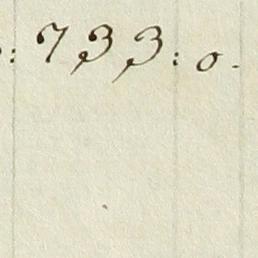 : 733 : 0.